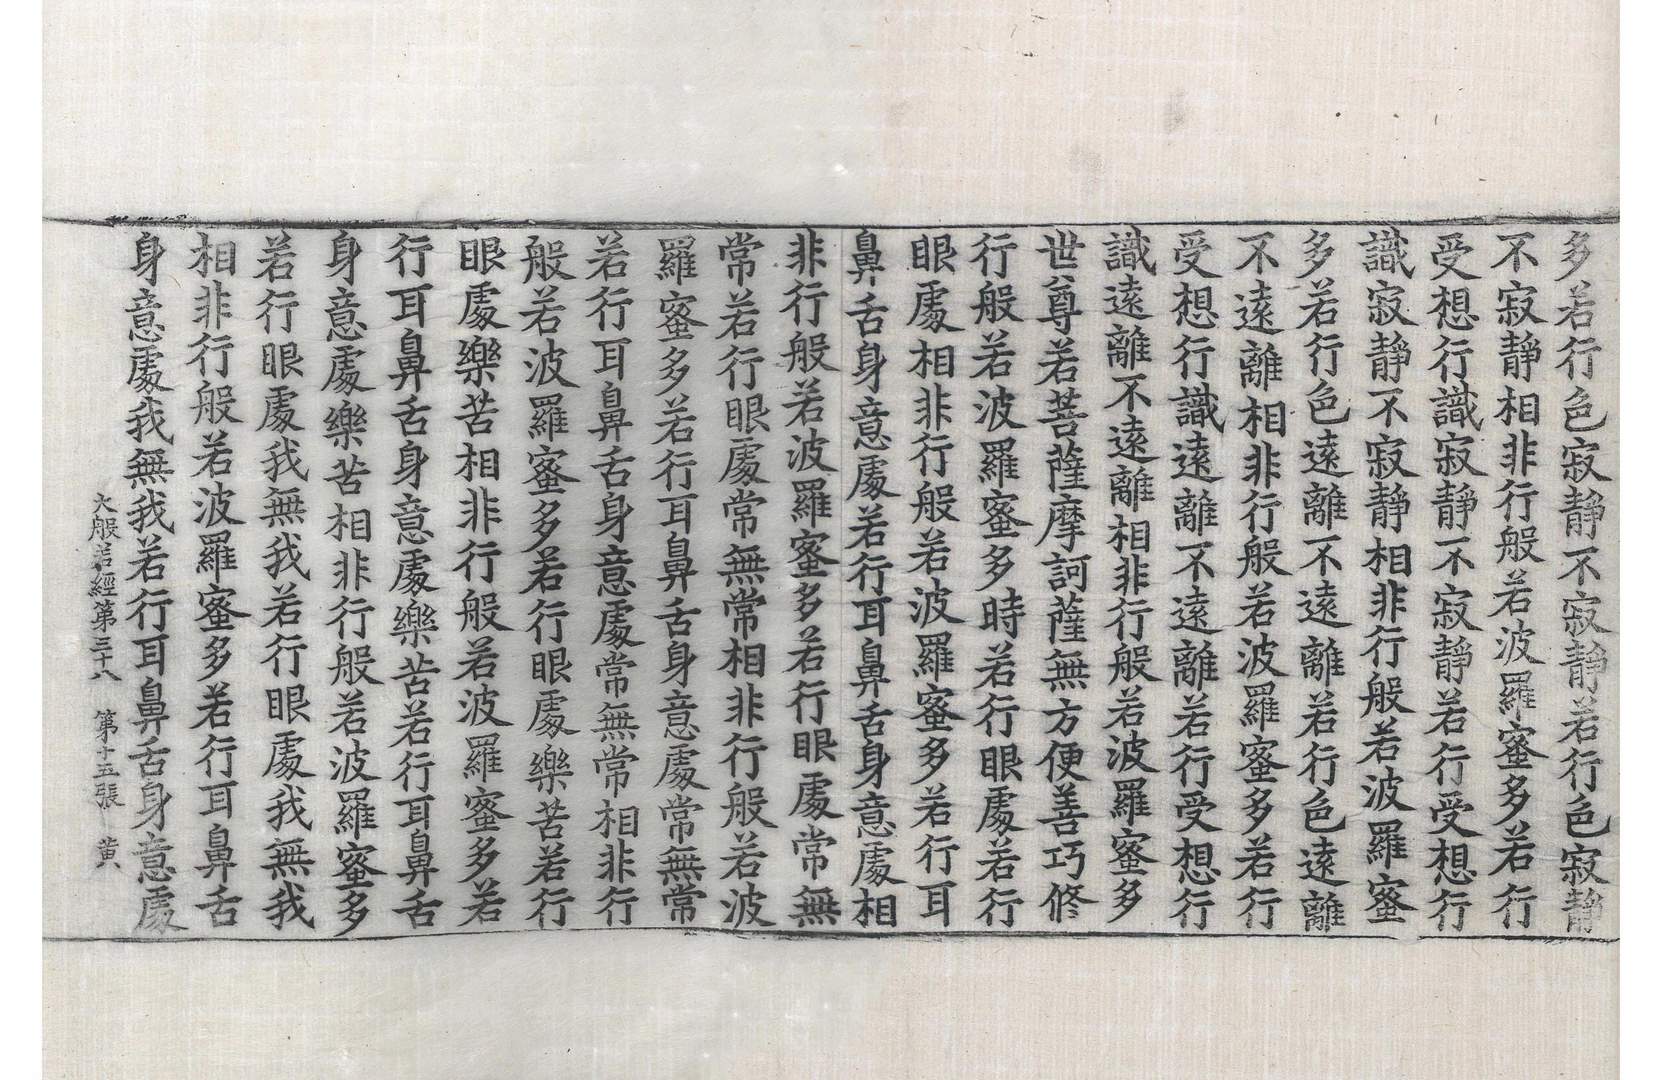 多若行色寂靜不寂靜若行色寂靜
不寂靜相非行般若波羅蜜多若行
受想行識寂靜不寂靜若行受想行
識寂靜不寂靜相非行般若波羅蜜
多若行色遠離不遠離若行色遠離
不遠離相非行般若波羅蜜多若行
受想行識遠離不遠離若行受想行
識遠離不遠離相非行般若波羅蜜多
世尊若菩薩摩訶薩無方便善巧修
行般若波羅蜜多時若行眼處若行
眼處相非行般若波羅蜜多若行耳
鼻舌身意處若行耳鼻舌身意處相
非行般若波羅蜜多若行眼處常無
常若行眼處常無常相非行般若波
羅蜜多若行耳鼻舌身意處常無常
若行耳鼻舌身意處常無常相非行
般若波羅蜜多若行眼處樂苦若行
眼處樂苦相非行般若波羅蜜多若
行耳鼻舌身意處樂苦若行耳鼻舌
身意處樂苦相非行般若波羅蜜多
若行眼處我無我若行眼處我無我
相非行般若波羅蜜多若行耳鼻舌
身意處我無我若行耳鼻舌身意處
大般若經第三十八 第十五張 黃